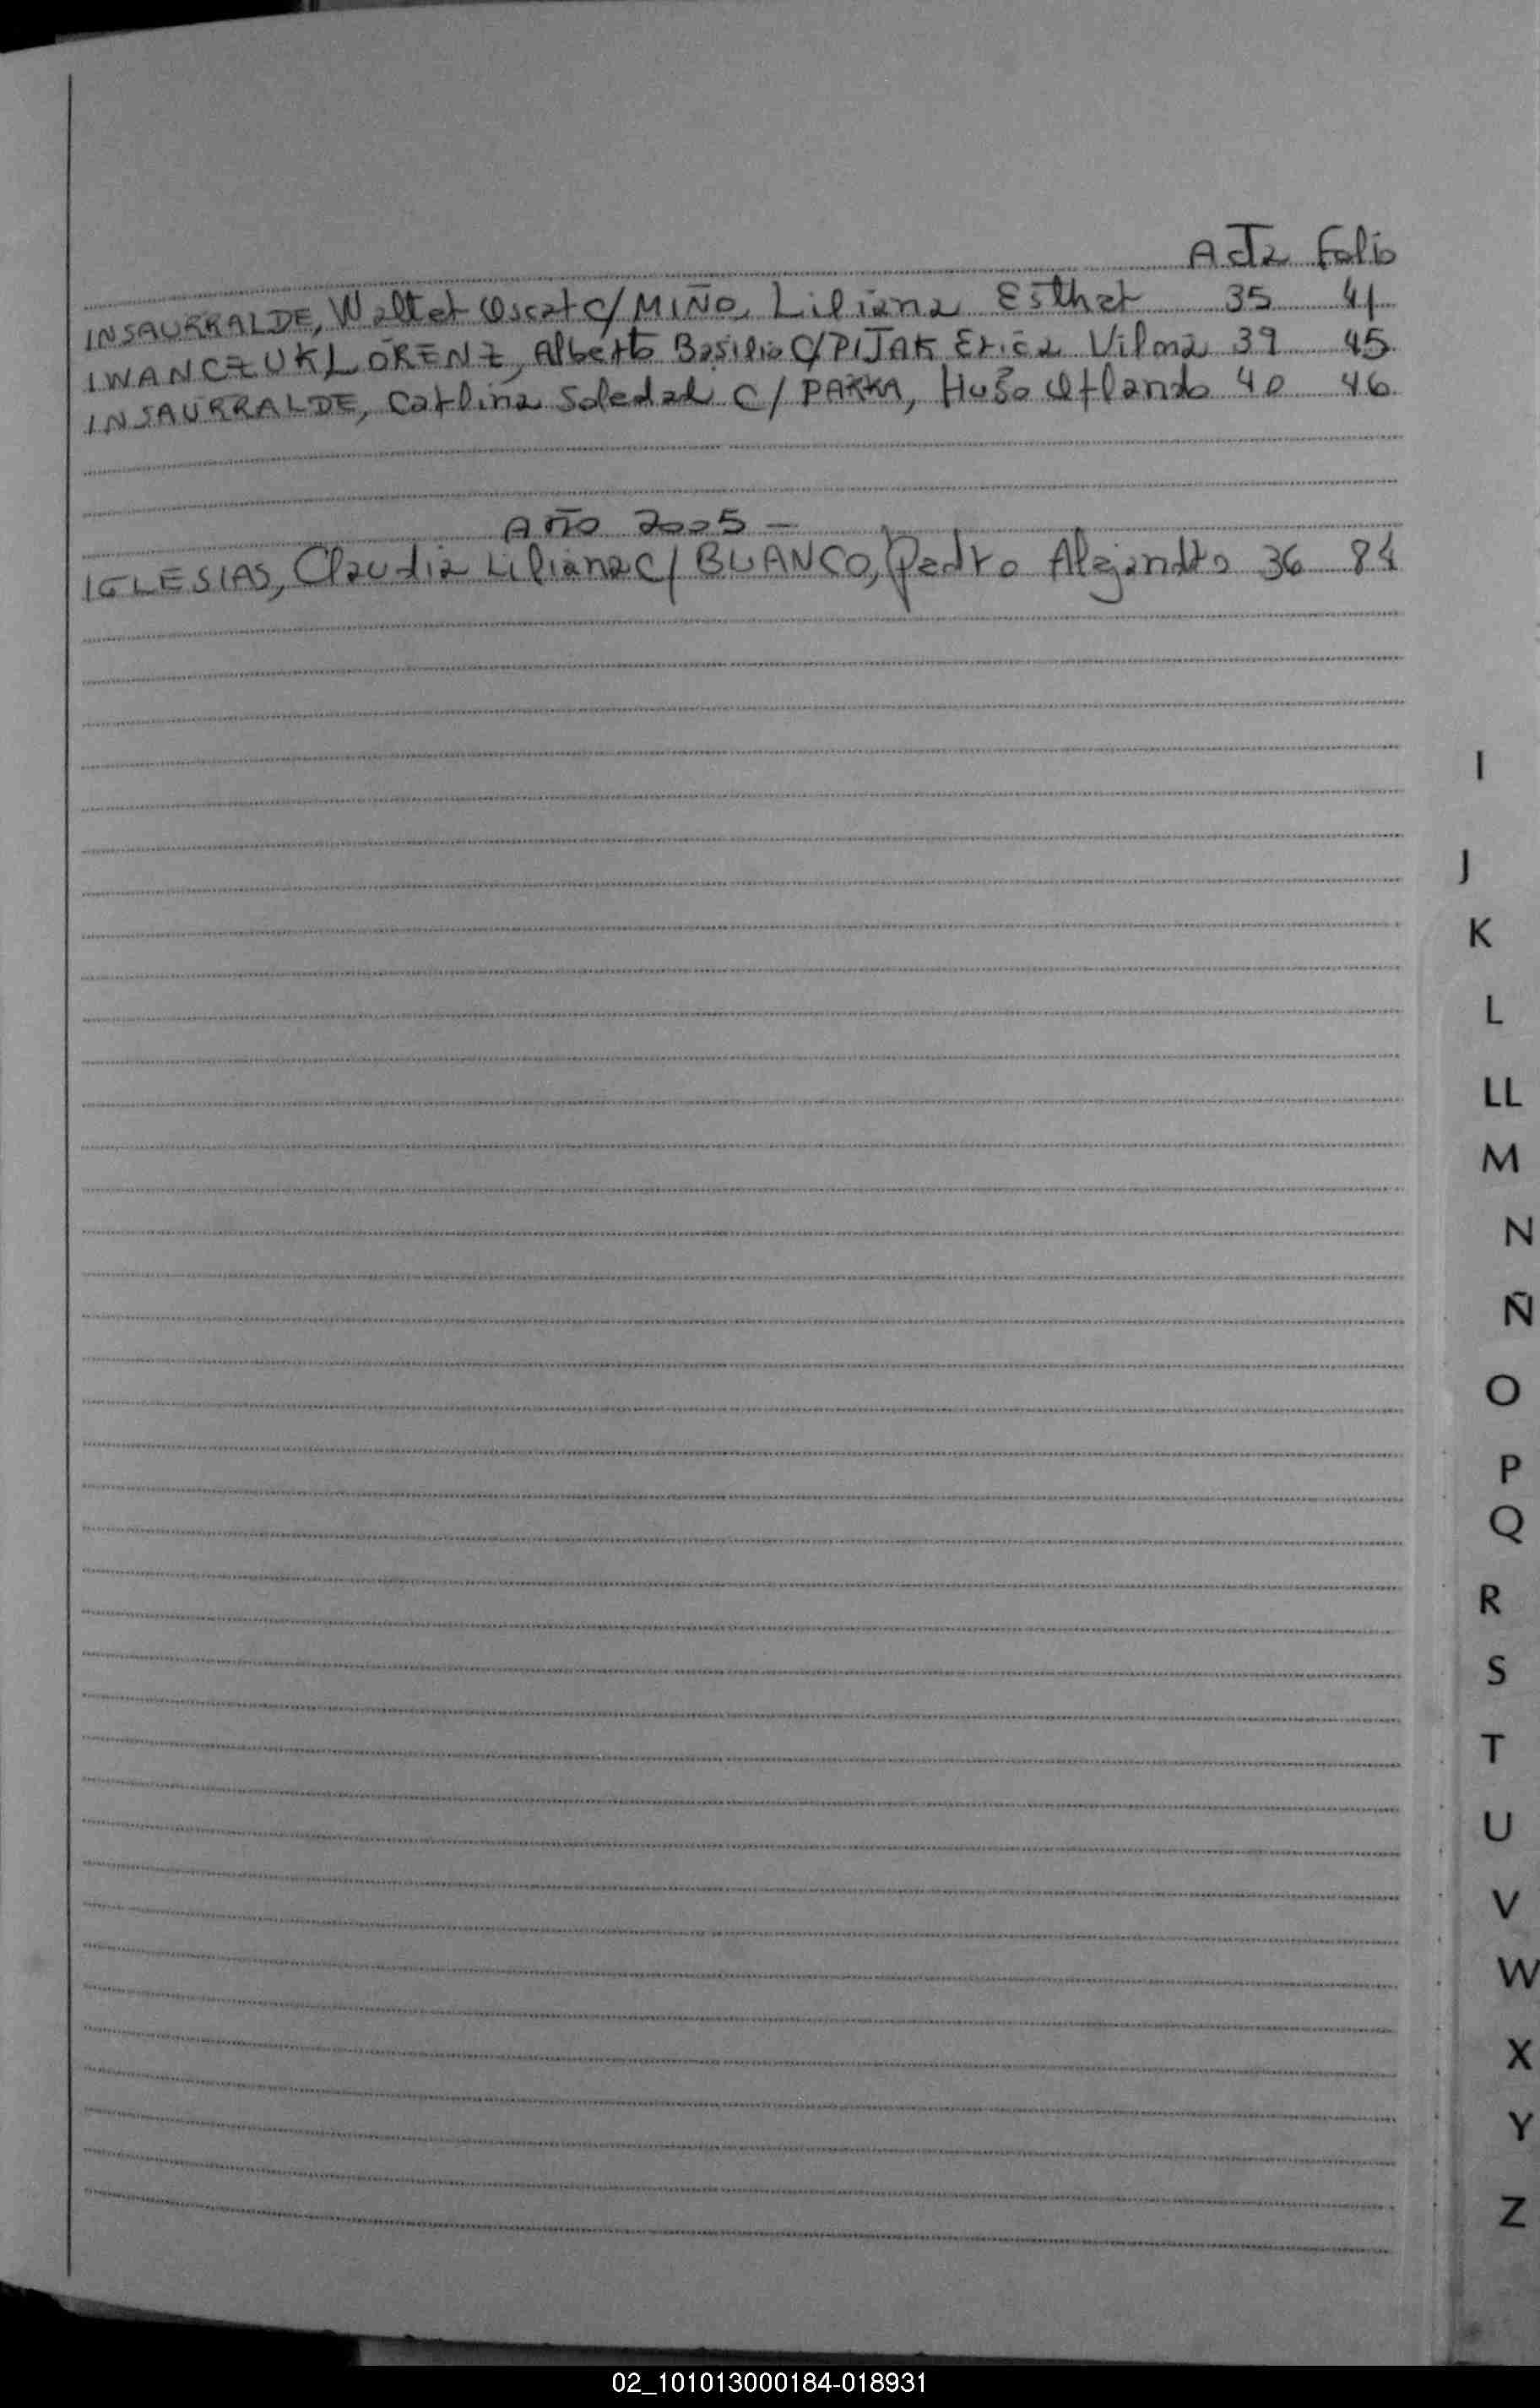 Acta Folio
INSAURRALDE, Walter Oscar c/ MIÑO, Liliana Esther 35 41
IWANCZUK LORENZ, Alberto Basilio c/ PIJAK Erica Vilma 39 45
INSAURRALDE, Carlina Soledad c/ PARRA, Hugo Orlando 40 46
Año 2005 –
IGLESIAS, Claudia Liliana c/ BLANCO, Pedro Alejandro 36 84
I
J
K
L
LL
M
N
Ñ
O
P
Q
R
S
T
U
V
W
X
Y
Z
02_101013000184-018931